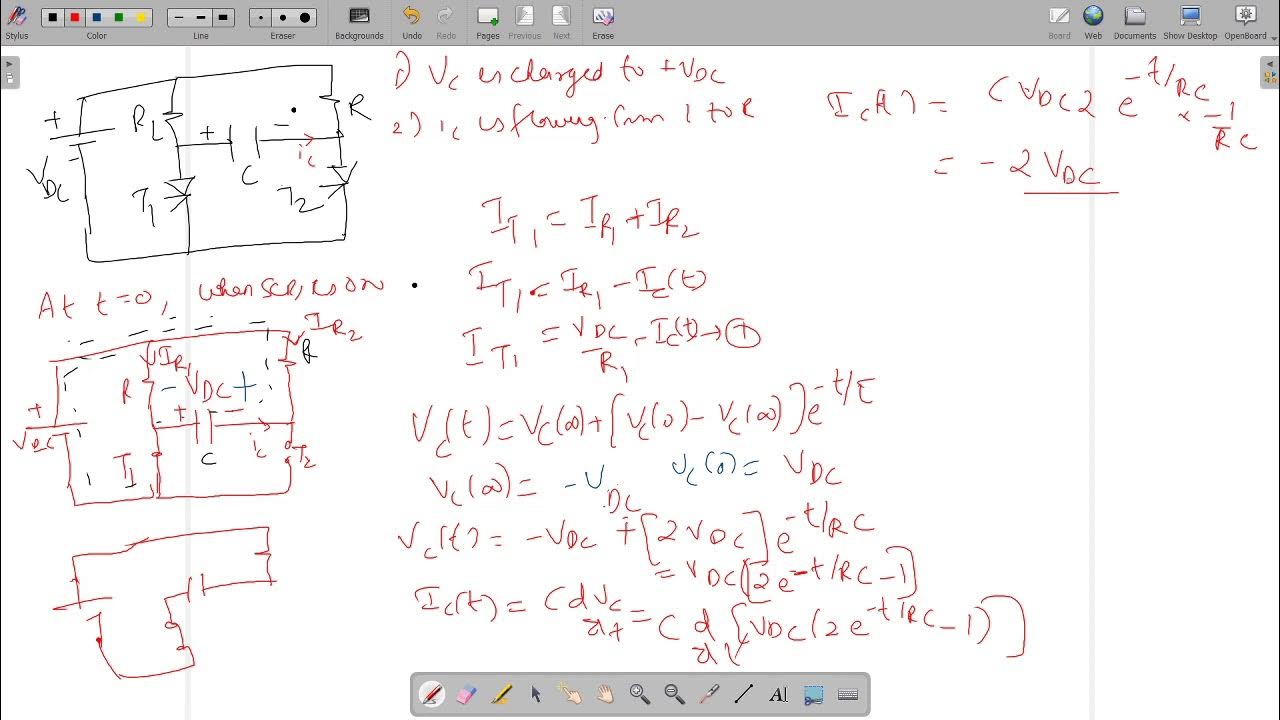 Stylus Color Line Eraser Backgrounds Undo Redo Pages Previous Next Erase Board Web Documents Show Desktop OpenBoard
1) Vc is charged to +VDC
2) ic is flowing from L to R
+ VDC - RL + - R ic C T1 T2
Ic(t) = C VDC 2 e^-t/RC × -1/RC
= - 2 VDC
IT1 = IR1 + IR2
At t=0, when SCR1 is on
IT1 = IR1 - Ic(t)
IT1 = VDC/R1 - Ic(t) → ①
IR1 IR2 R R - VDC + + - + VDC T1 C ic T2
Vc(t) = Vc(∞) + [Vc(0) - Vc(∞)] e^-t/τ
Vc(∞) = -VDC Vc(0) = VDC
Vc(t) = -VDC + [2 VDC] e^-t/RC
= VDC [2e^-t/RC - 1]
Ic(t) = C dVc/dt = C d/dt [VDC (2e^-t/RC - 1)]
AI